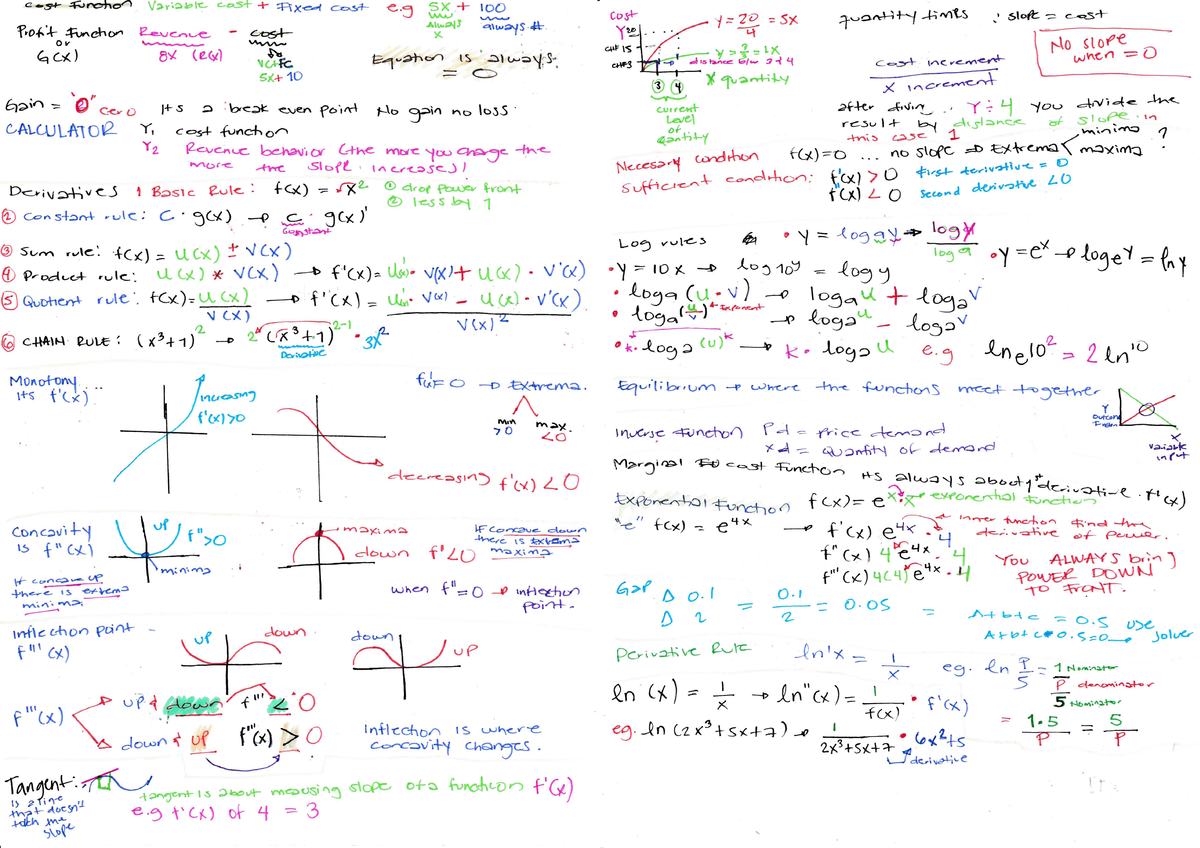 cost Function Variable cost + Fixed cost e.g 5x + 100
Always x always #.
Profit Function Revenue - cost
or
G(x) 8x (R(x)) VC+FC
5x+10
Equation is always = 0
Gain = "0" cero Its a break even point No gain no loss.
CALCULATOR Y1 cost function
Y2 Revenue behavior (the more you charge the
more the slope increases)
Derivatives 1 Basic Rule: f(x) = x² ① drop power front
② less by 1
② constant rule: C · g(x) → C · g(x)'
Constant
③ Sum rule: f(x) = U(x) ± V(x)
④ Product rule: U(x) * V(x) → f'(x) = U'(x) · V(x) + U(x) · V'(x)
⑤ Quotient rule: f(x) = U(x) / V(x) → f'(x) = U'(x) · V(x) - U(x) · V'(x) / V(x)²
⑥ CHAIN RULE: (x³+1)² → 2 (x³+1)²⁻¹ · 3x²
Derivative
Monotony...
Its f'(x)
increasing
f'(x)>0
decreasing f'(x) < 0
f'(x)=0 → Extrema.
min >0 max. <0
Concavity
is f"(x)
up f">0
minima
If concave up
there is extrema
minima.
maxima
down f'<0
If concave down
there is extrema
maxima
when f"=0 → inflection
point.
Inflection point -
f"' (x)
up down
down up
f"'(x)
up & down f"' < 0
down & up f"'(x) > 0
Inflection is where
concavity changes.
Tangent:
is a line
that doesn't
toch the
slope
tangent is about meausing slope of a function f'(x)
e.g f'(x) of 4 = 3
Cost
Y 20
CHF 15
CHF 3
y = 20/4 = 5x
y = 3/3 = 1x
distance b/w 3 & 4
X quantity
③ ④
current
Level
of
qantity
quantity times : slope = cost
No slope
when = 0
cost increment
X increment
after divin . Y ÷ 4 you divide the
result by distance of slope. in
this case 1
Necesary condition f(x)=0 ... no slope ⇒ Extrema minima maxima ?
Sufficient condition: f'(x) > 0 first derivative = 0
f"(x) < 0 second derivative < 0
Log rules • y = log a y → log y / log a
• y = e^x → log e y = ln y
• y = 10x → log 10 y = log y
• log a (u · v) → log a u + log a v
• log a (u/v) exponent → log a u - log a v
• k · log a (u)^k → k · log a u e.g ln e 10² = 2 ln 10
Equilibrium → where the functions meet together
Y
outcome
X
variable
input
Inverse function Pd = Price demand
xd = Quantity of demand
Marginal cost function its always about 1st derivative. f'(x)
Exponential Function f(x) = e^x · x → exponential function
"e" f(x) = e^4x → f'(x) e^4x · 4
inner function find the
derivative of power.
f"(x) 4 e^4x · 4
f"'(x) 4(4) e^4x · 4
You ALWAYS brin)
POWER DOWN
TO FRONT.
Gap Δ 0.1
Δ 2 = 0.1/2 = 0.05 = A+b+c = 0.5 use
A+b+c 0.5=0 → solver
Derivative Rule ln'x = 1/x eg. ln P/5 = 1 Nominator
P denominator
5 Nominator
ln (x) = 1/x → ln"(x) = 1/f(x) • f'(x)
= 1·5/P = 5/P
eg. ln (2x³+5x+7) → 1/2x³+5x+7 • 6x²+5
derivative